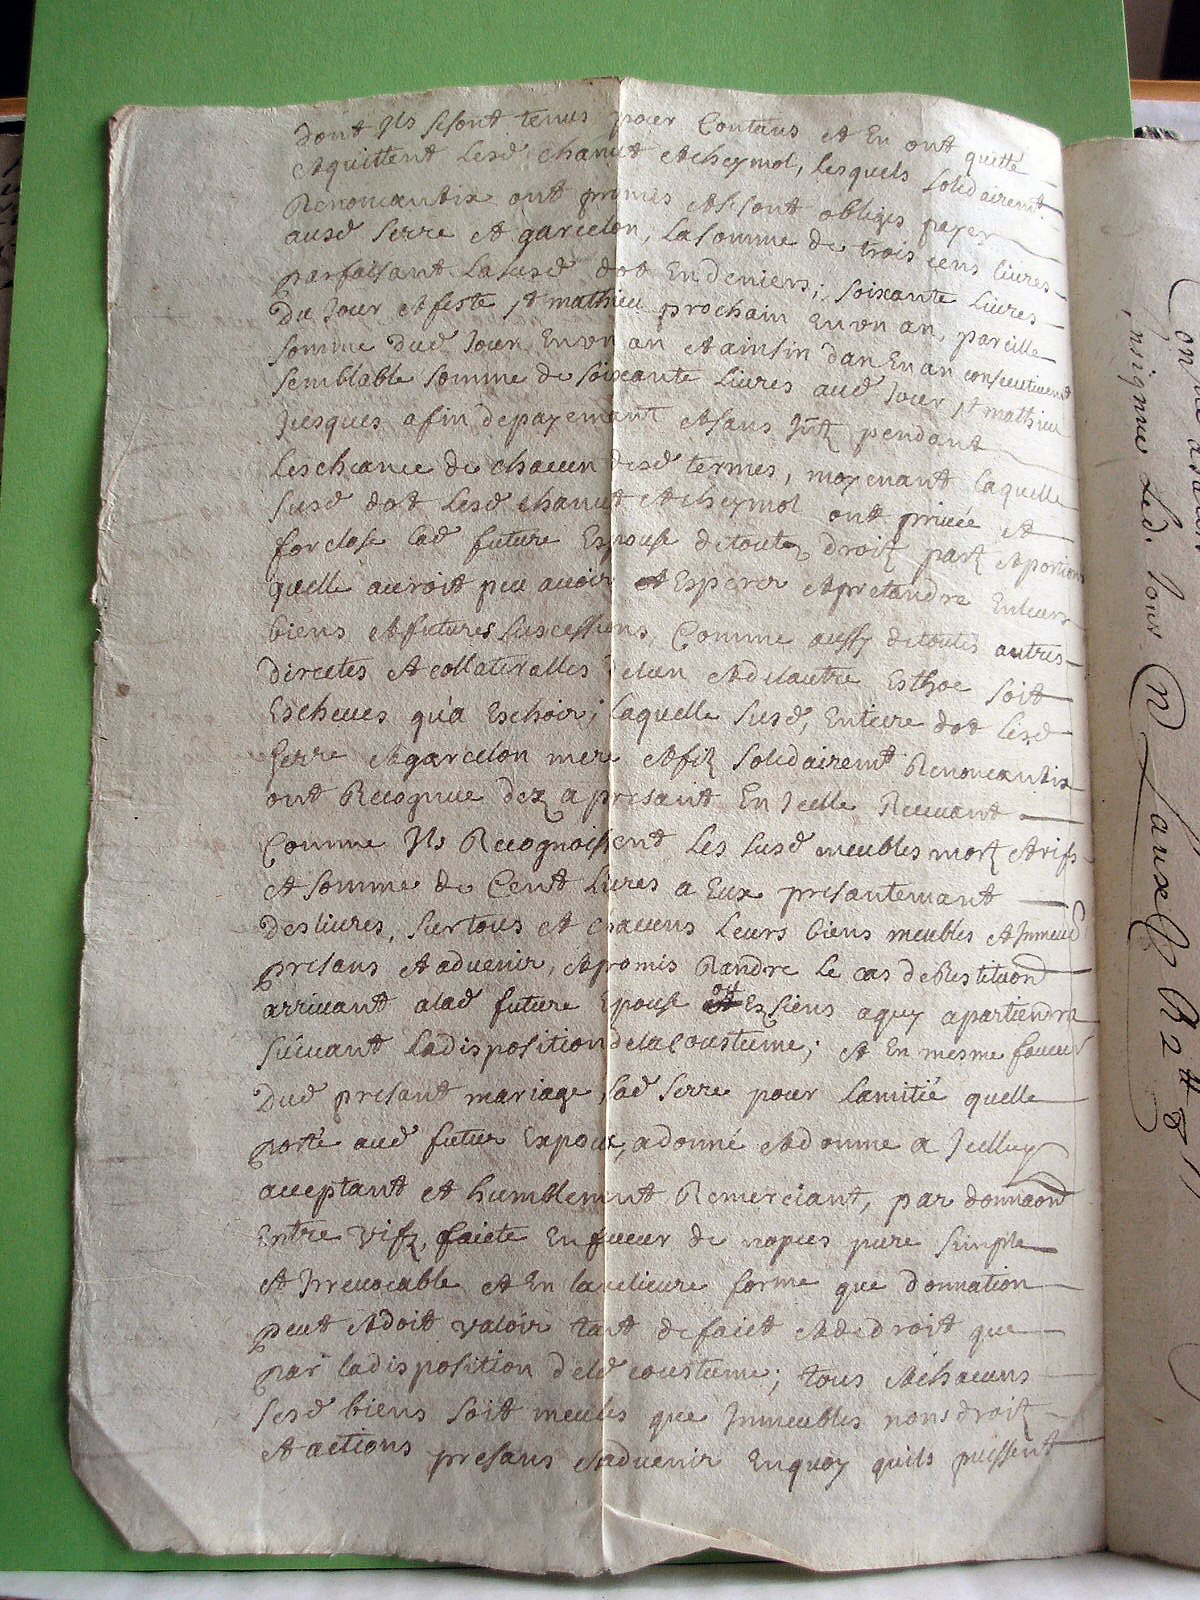 dont Ils se sont tenus pour Contans et En ont quitté
et quittent Lesd chanut et cheymol, lesquels solidairemt
Renonceant ont promis et se sont obligés payer
ausd serre et garcelon, La somme de trois cens livres
parfaisant La susd dot En deniers; soixante Livres
Du Jour et feste st mathieu prochain En un an, pareille
somme dud Jour En un an et ainsin dan En an consecutivemt
semblable somme de soixante Livres aud Jour st mathieu
Jusques a fin de payemant et sans Intz pendant
Lescheance de chacun desd termes, moyenant Laquelle
susd dot Lesd chanut et cheymol ont privée et
forclose lad future Espouse de toutes droitz partz et portions
quelle auroit peu avoir et Esperer et pretandre En leurs
biens et futures successions Comme aussy de toutes autres
directes et collateralles de lun et de lautre Esthoc soit
Escheues qu'a Eschoir; laquelle susd, Entiere dot lesd
serre et garcelon mere et filz solidairemt Renonceant
ont Recognue dez a presant En Icelle Recevant
Comme Ils Recognoissent Les susd meubles mortz et vifs
et somme de Cent Livres a Eux presantemant
deslivrés, sur tous et chacuns Leurs biens meubles et Immeub
presans et advenir, et promis Randre le cas de Restituon
arrivant a lad future Epouse ou Es siens a quy apartiendra
suivant la disposition de la Coustume; et En mesme faveur
Dud presant mariage Lad serre pour Lamitié quelle
porte aud futur Espoux, a donné et donne a Icelluy
acceptant et humblement Remerciant, par donnaon
Entre vifz, faicte En faveur de nopces pure simple
et Irrevocable et En la melieure forme que donnation
peut et doit valoir tant de faict et de droit que
par la disposition de lad coustume; tous et chacuns
sesd biens soit meubles que Immeubles noms droitz
et actions presans et advenir En quoy quils puissent
nsigne Led. Jour